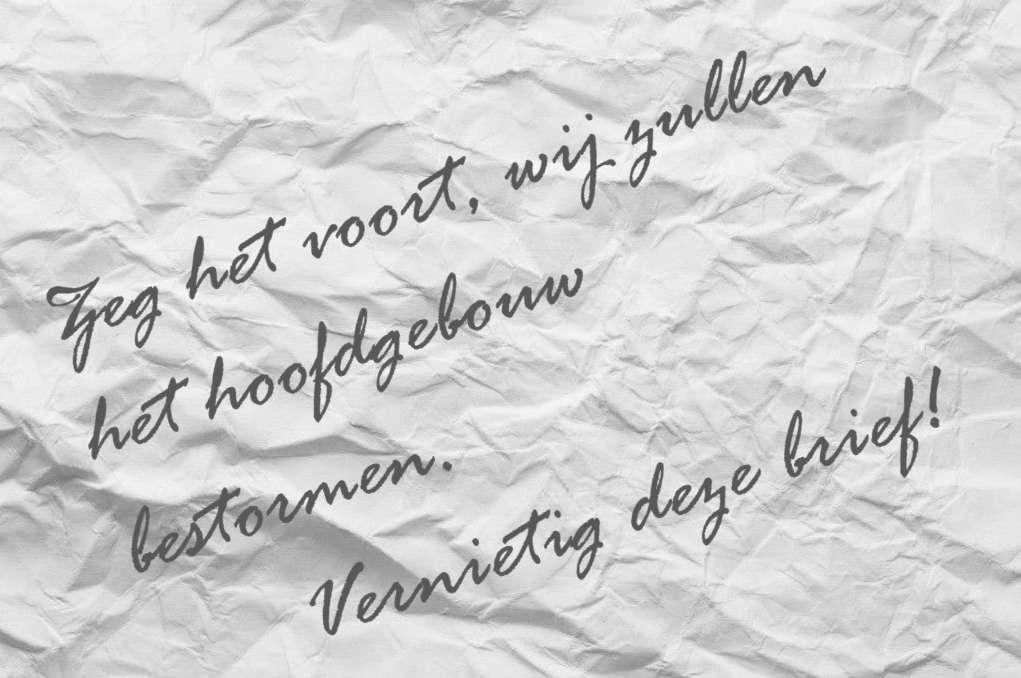 Zeg het voort, wij zullen
het hoofdgebouw
bestormen.
Vernietig deze brief!